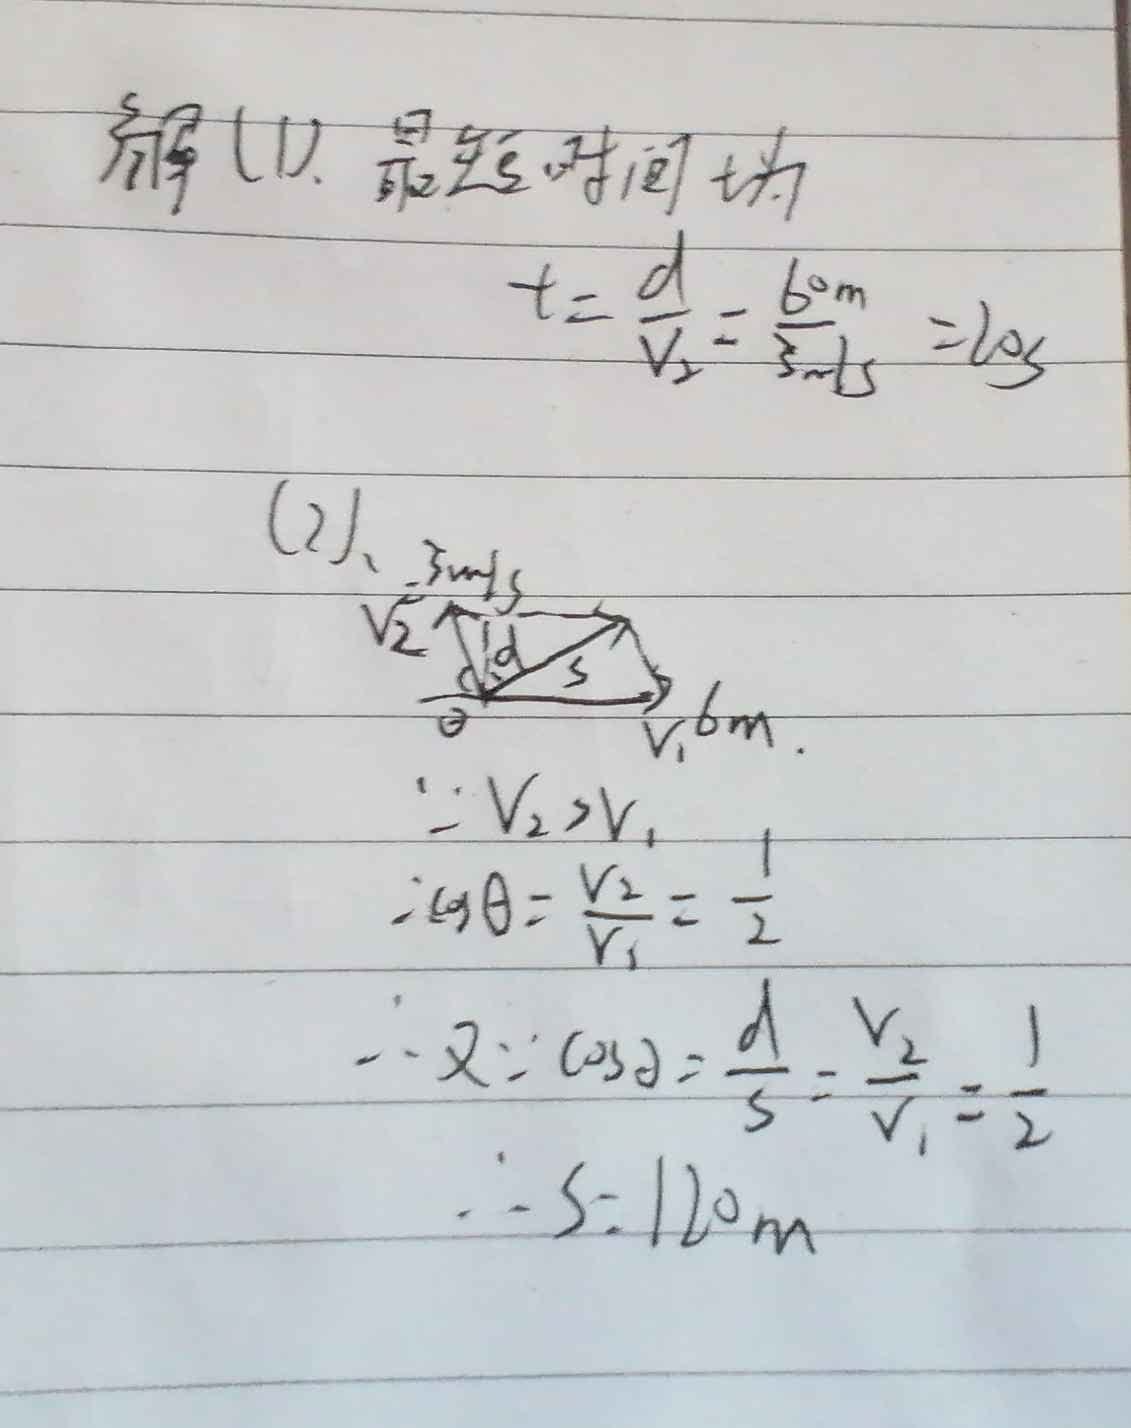 解(1). 最短时间t为
t = d/V₂ = 60m/3m/s = 20s
(2)、
3m/s
V₂
d
s
θ
V₁ 6m.
∵ V₂ > V₁
∴ cosθ = V₂/V₁ = 1/2
∴ 又∵ cosθ = d/s = V₂/V₁ = 1/2
∴ S = 120m